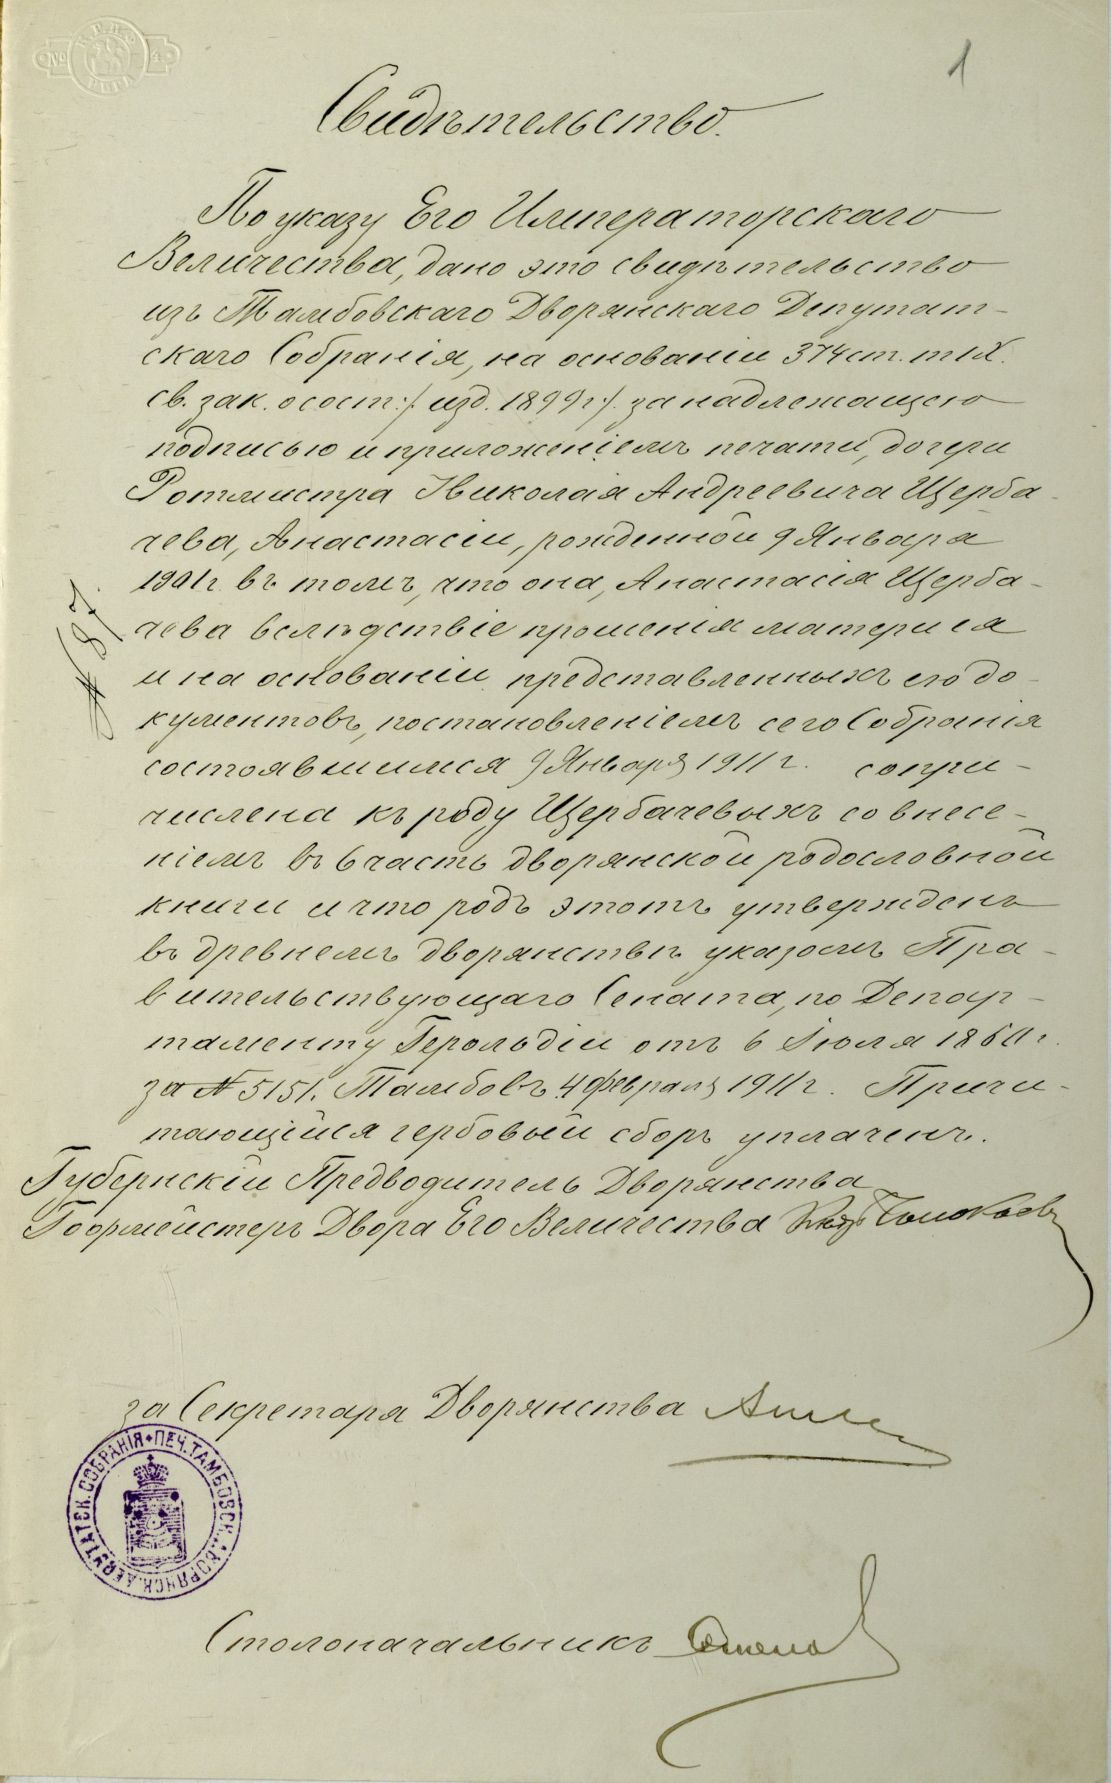 1
Свидѣтельство.
По указу Его Императорскаго
Величества, дано это свидѣтельство
изъ Тамбовскаго Дворянскаго Депутат-
скаго Собранія, на основаніи 374 ст. т IX.
св. зак. о сост: /. изд. 1899 г /. за надлежащею
подписью и приложеніемъ печати, дочери
Ротмистра Николая Андреевича Щерба-
чева, Анастасіи, рожденной 9 Января
1901 г. въ томъ, что она, Анастасія Щерба-
чева вслѣдствіе прошенія матери ея
и на основаніи представленныхъ ею до-
кументовъ, постановленіемъ сего Собранія
состоявшимся 9 Января 1911 г. сопри-
числена къ роду Щербачевыхъ со внесе-
ніемъ въ 6 часть дворянской родословной
книги и что родъ этотъ утвержденъ
въ древнемъ дворянствѣ указомъ Пра-
вительствующаго Сената, по Депар-
таменту Герольдіи отъ 6 Іюля 18 г.
за № 5151. Тамбовъ. 4 февраля 1911 г. Причи-
тающійся гербовый сборъ уплаченъ.
№ 87.
Губернскій Предводитель Дворянства
Гофмейстеръ Двора Его Величества Князь Чолокаевъ
за Секретаря Дворянства
ПЕЧ. ТАМБОВСК. ДВОРЯНСК. ДЕПУТАТСК. СОБРАНІЯ
Столоначальникъ